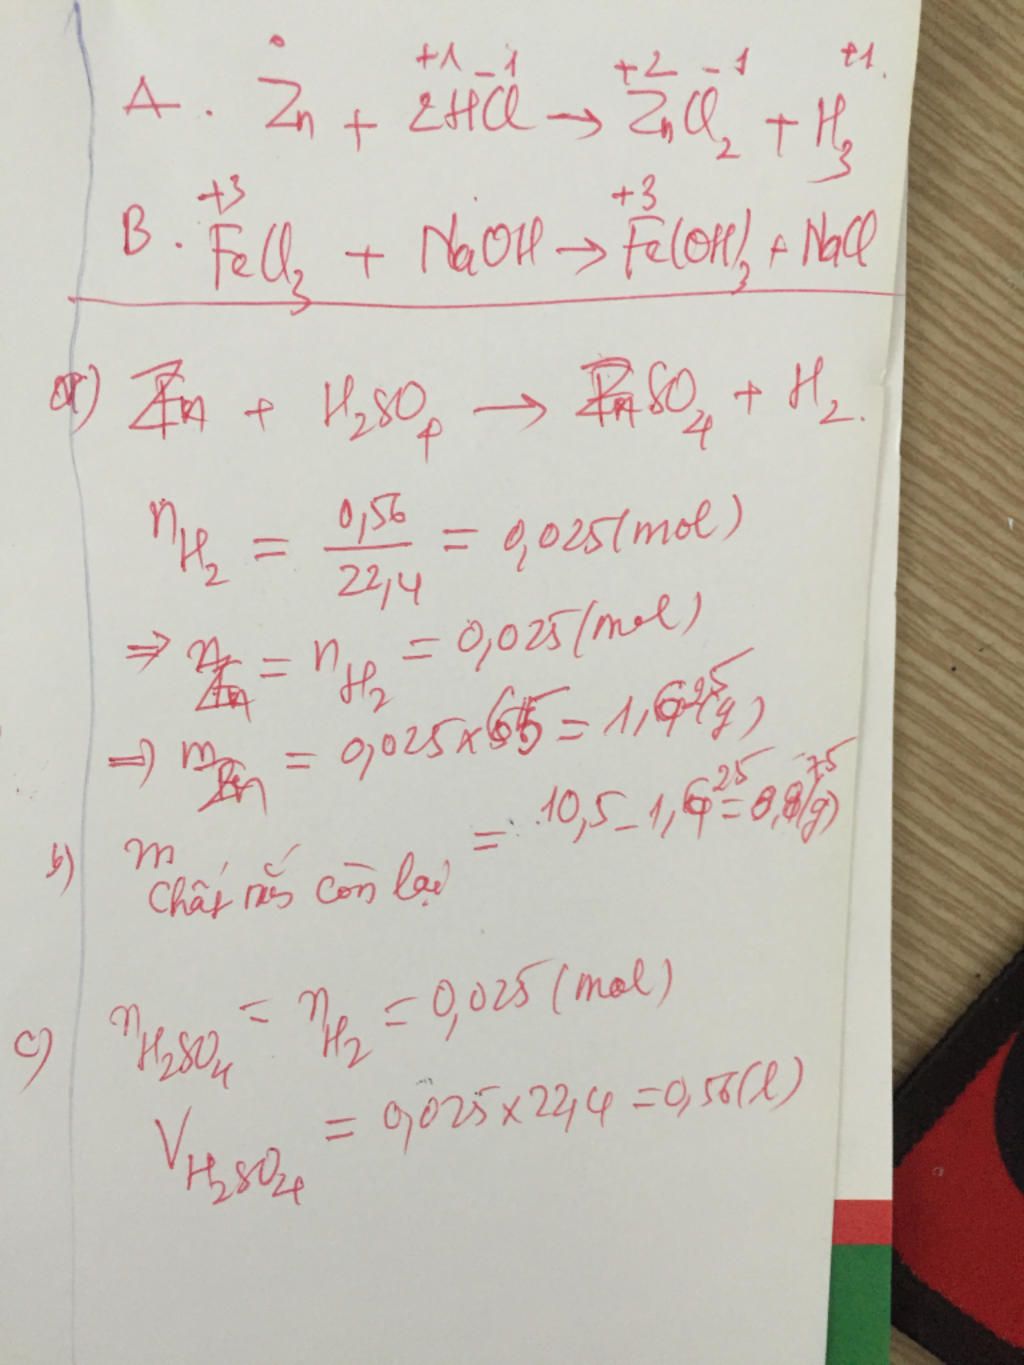 A. Zn + 2HCl → ZnCl₂ + H₃
+1 -1 +2 -1 +1
B. FeCl₃ + NaOH → Fe(OH)₃ + NaCl
+3 +3
a) Zn + H₂SO₄ → ZnSO₄ + H₂.
n H₂ = 0,56 / 22,4 = 0,025 (mol)
⇒ n Zn = n H₂ = 0,025 (mol)
⇒ m Zn = 0,025 × 65 = 1,625 (g)
b) m chất rắn còn lại = 10,5 - 1,625 = 8,875 (g)
c) n H₂SO₄ = n H₂ = 0,025 (mol)
V H₂SO₄ = 0,025 × 22,4 = 0,56 (l)